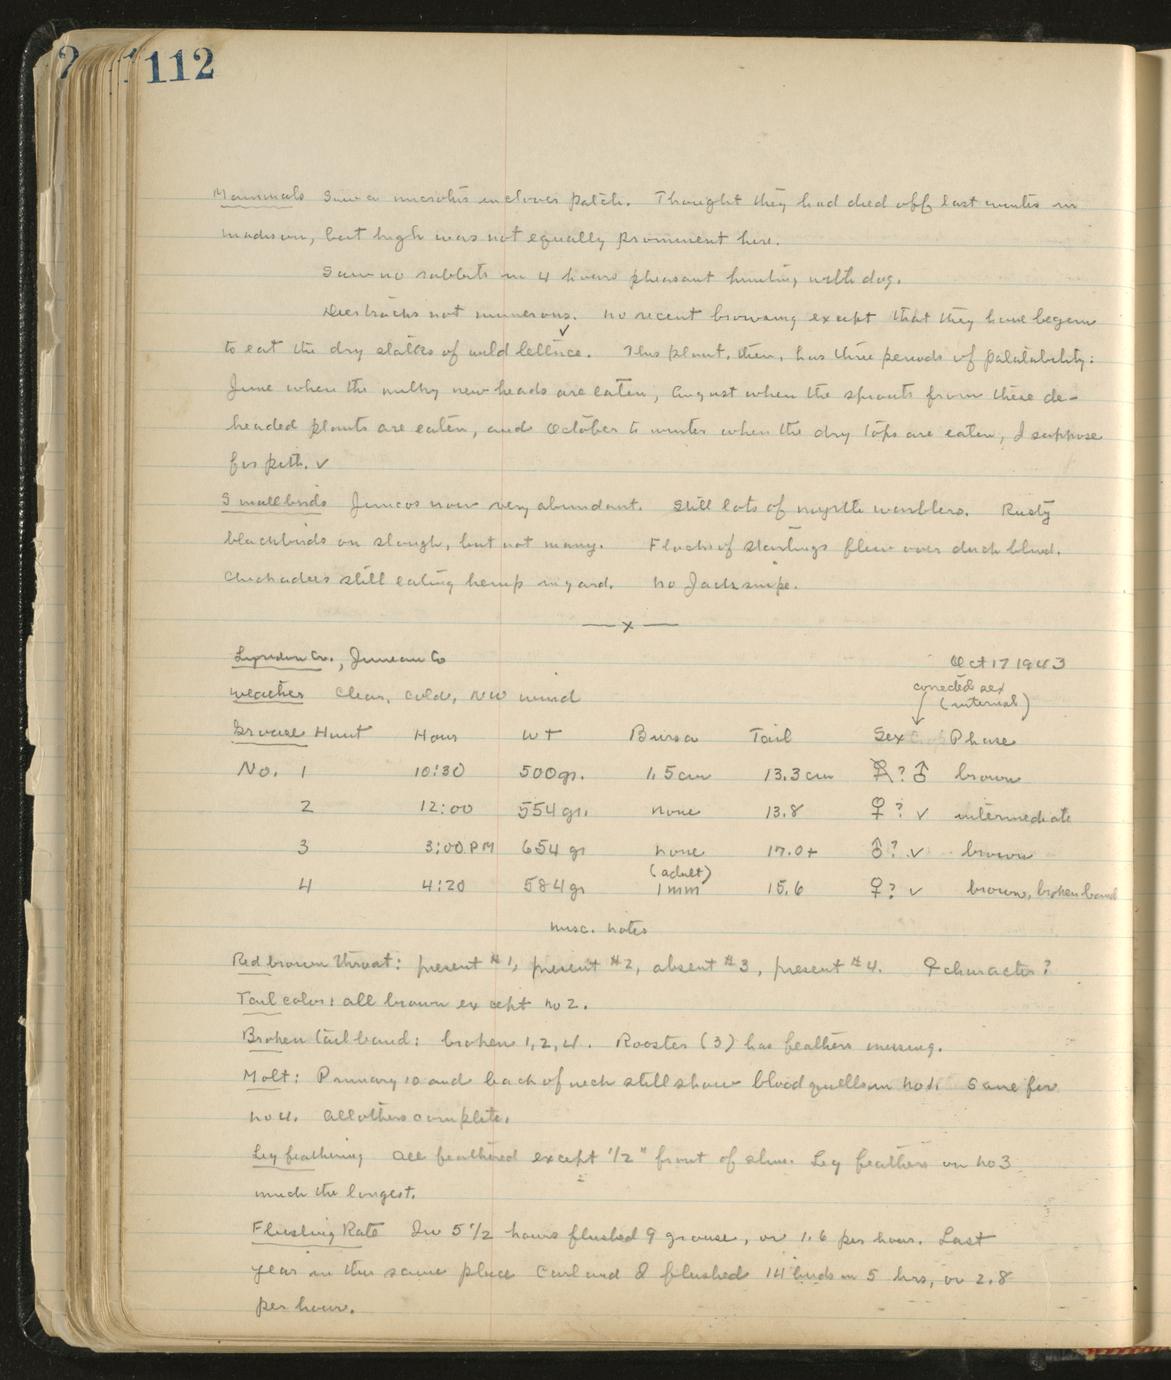 112
Mammals Saw a microtus in clover patch. Thought they had died off last winter in
Madison, but high was not equally prominent here.
Saw no rabbits in 4 hours pheasant hunting with dog.
Deer tracks not numerous. No recent browsing except that they have begun
to eat the dry stalks of wild lettuce. ✓ This plant, then, has three periods of palatability:
June when the milky new heads are eaten, August when the sprouts from these de-
headed plants are eaten, and October to winter when the dry tops are eaten, I suppose
for pith. ✓
Small birds Juncos now very abundant. Still lots of myrtle warblers. Rusty
blackbirds on slough, but not many. Flock of starlings flew over duck blind.
Chickadees still eating hemp in yard. No Jacksnipe.
— x —
Lyndon Cr., Juneau Co Oct 17 1943
Weather Clear, cold, NW wind
corrected sex
(internal)
Grouse Hunt Hour Wt Bursa Tail Sex Phase
No. 1 10:30 500gr. 1.5cm 13.3cm ♀? ♂ brown
2 12:00 554 gr. none 13.8 ♀? ✓ intermediate
3 3:00 PM 654 gr none 17.0+ ♂? ✓ brown
(adult)
4 4:20 584 gr 1mm 15.6 ♀? ✓ brown, broken band
Misc. notes
Red brown throat: present #1, present #2, absent #3, present #4. ♀ character?
Tail color: all brown except no 2.
Broken tail band: broken 1, 2, 4. Rooster (3) has feathers missing.
Molt: Primary 10 and back of neck still show blood quills in no 1. Same for
no 4. All others complete.
Leg feathering All feathered except 1/2" front of shin. Leg feathers on no 3
much the longest.
Flushing Rate In 5 1/2 hours flushed 9 grouse, or 1.6 per hour. Last
year in the same place Carl and I flushed 14 birds in 5 hrs, or 2.8
per hour.